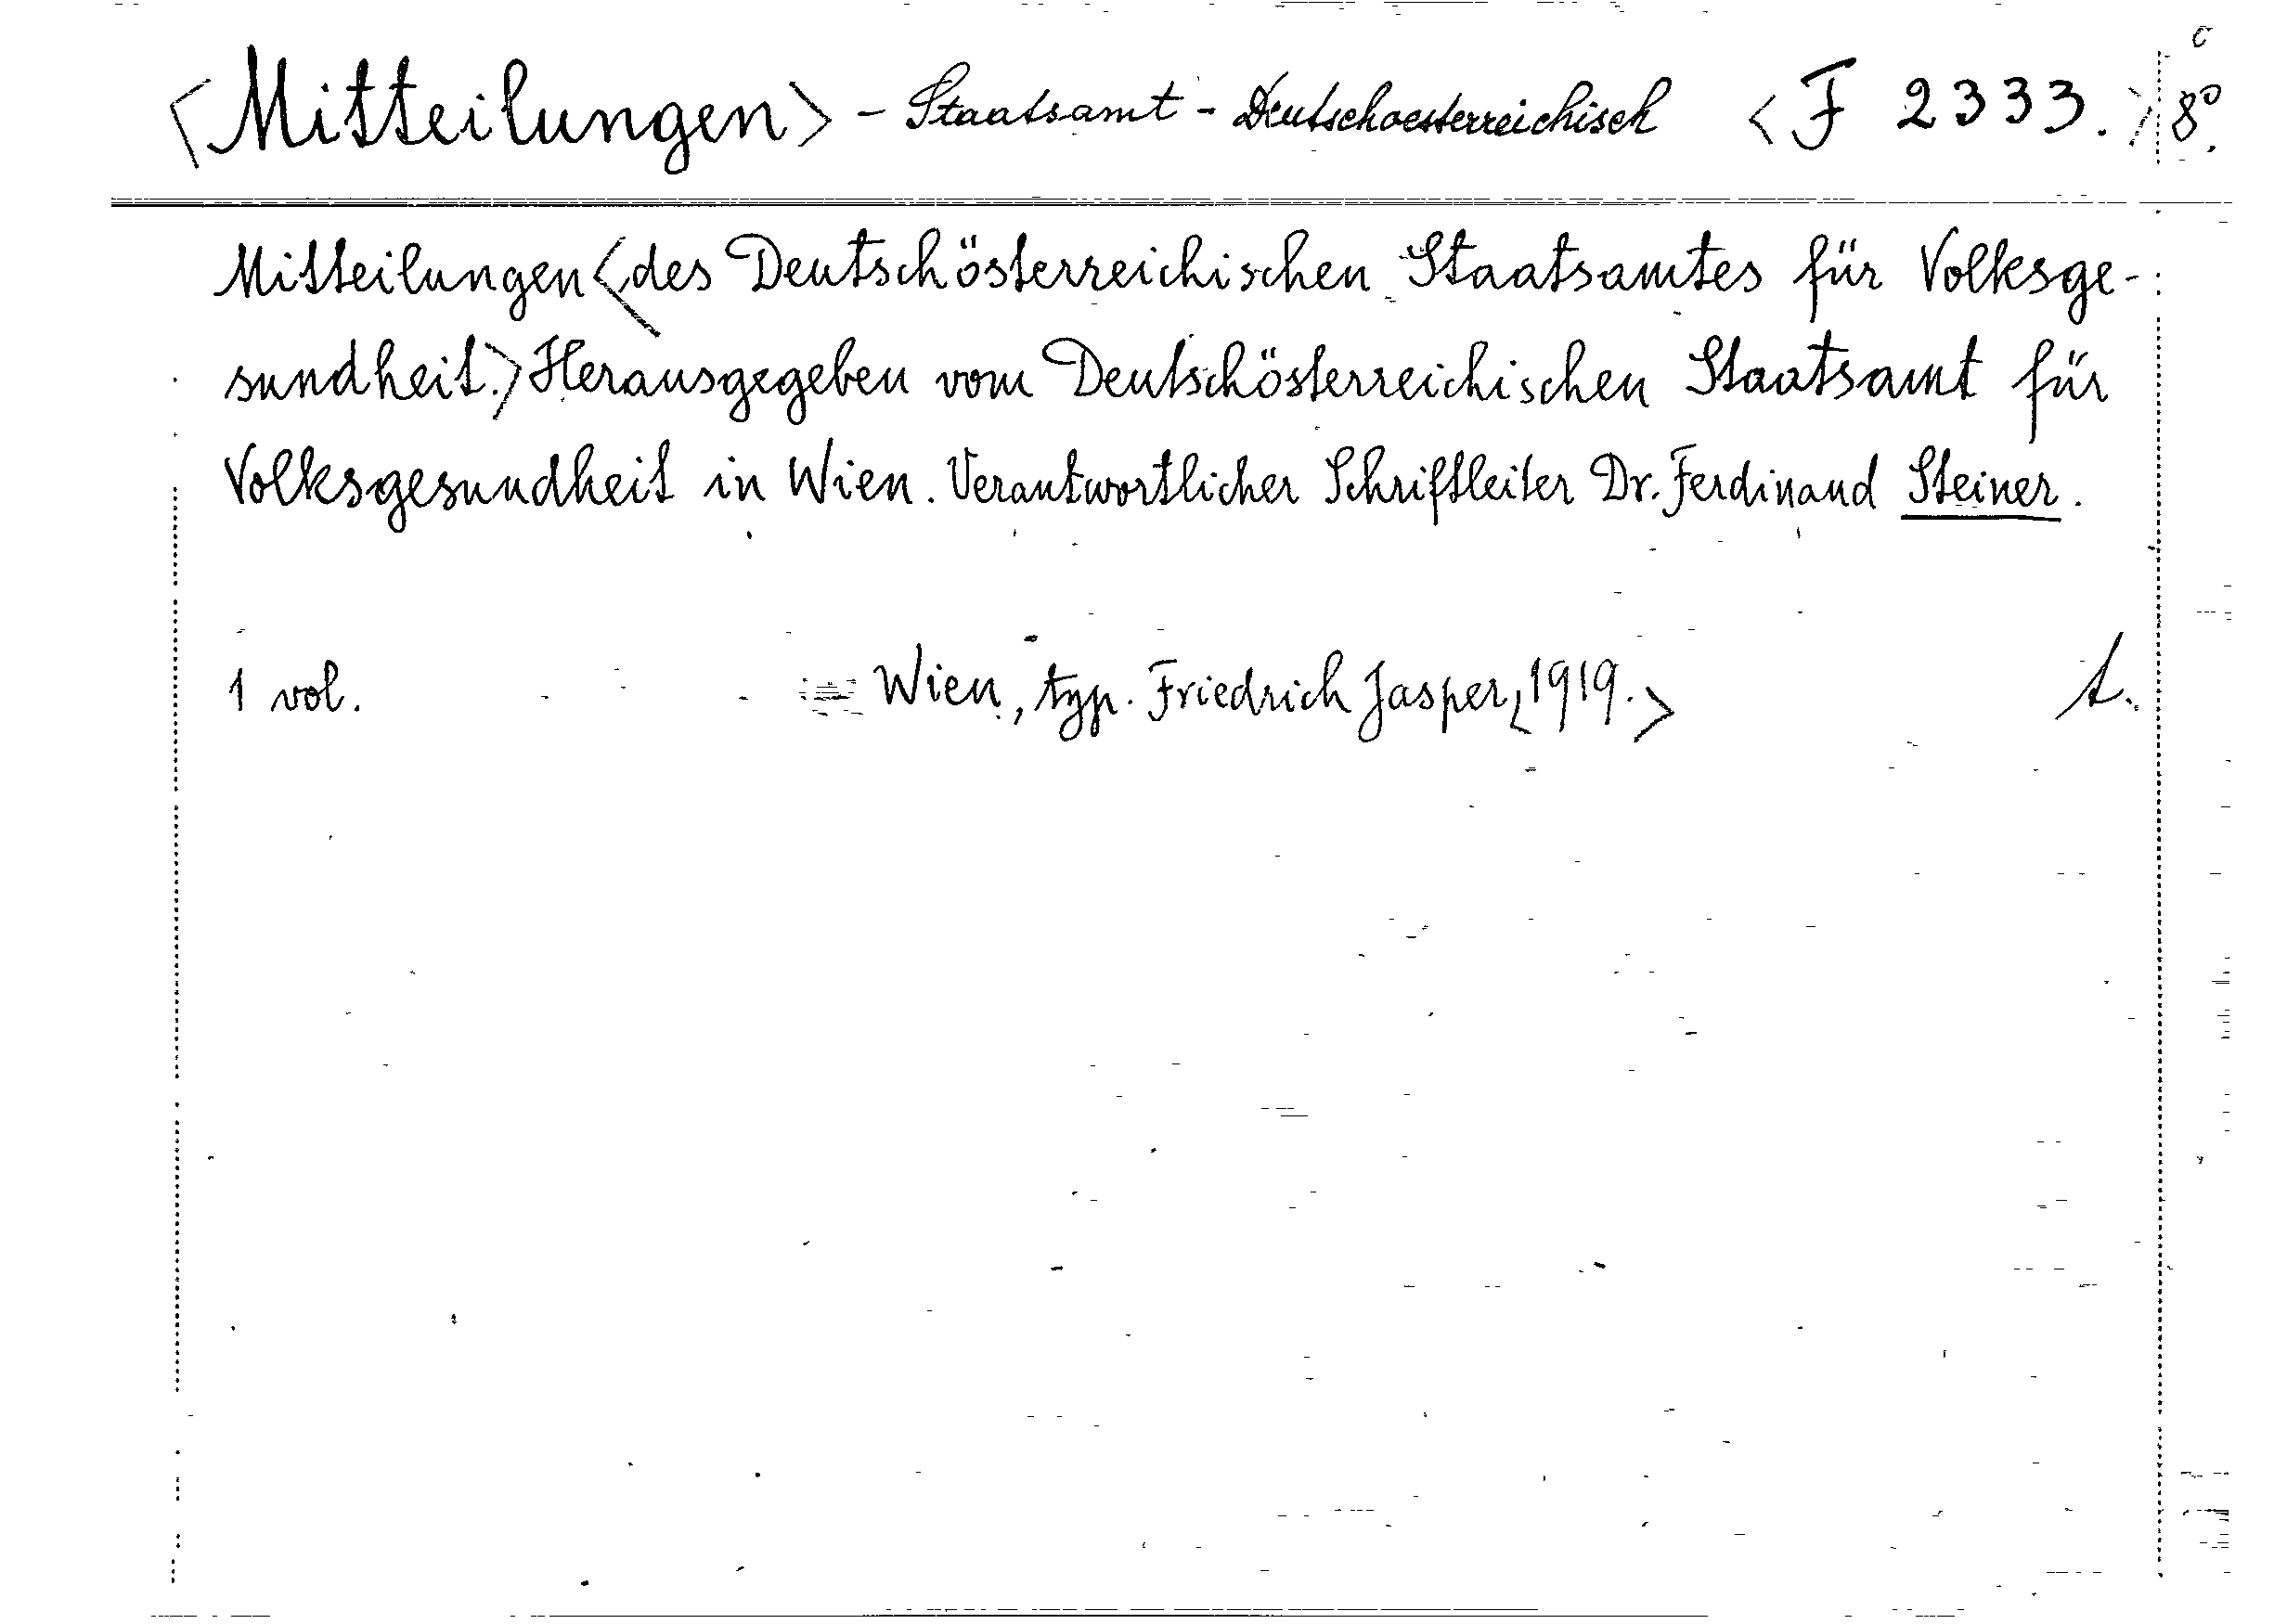 <Mitteilungen> - Staatsamt - Deutschoesterreichisch <F 2333.> 8°.
Mitteilungen <des Deutschösterreichischen Staatsamtes für Volksge-
sundheit.> Herausgegeben vom Deutschösterreichischen Staatsamt für
Volksgesundheit in Wien. Verantwortlicher Schriftleiter Dr. Ferdinand Steiner.
1 vol. Wien, typ. Friedrich Jasper, <1919.>